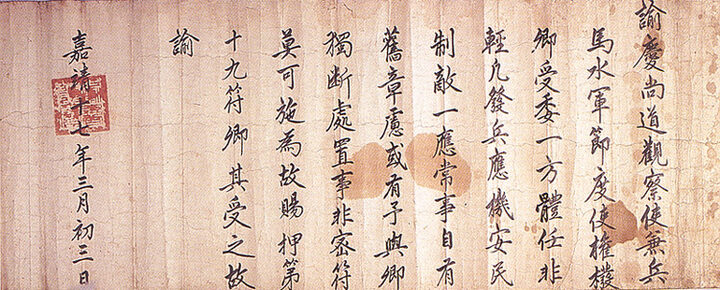 諭慶尚道觀察使兼兵
馬水軍節度使權橃
卿受委一方體任非
輕凢發兵應機安民
制敵一應常事自有
舊章慮或有予與卿
獨斷處置事非密符
莫可施爲故賜押第
十九符卿其受之故
諭
嘉靖十七年三月初三日